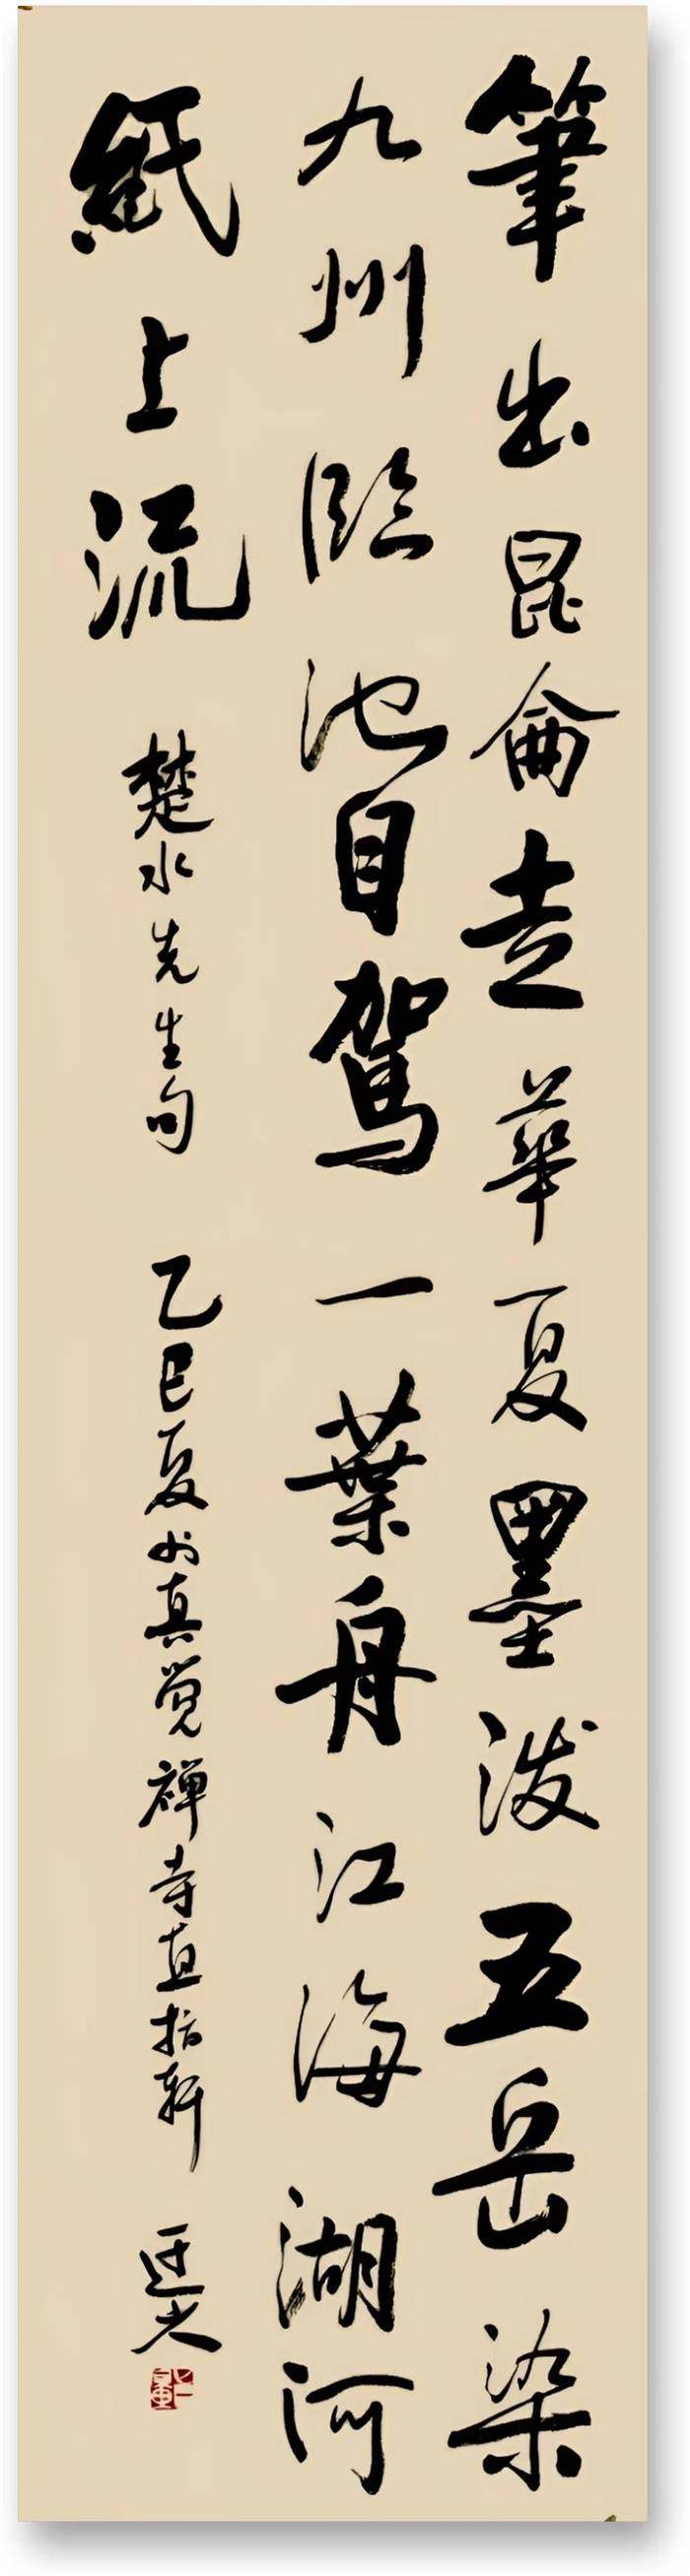 筆出昆侖走華夏墨潑五岳染
九州臨池自駕一葉舟江海湖河
紙上流
楚水先生句
乙巳夏於真覺禪寺直指軒
迂夫